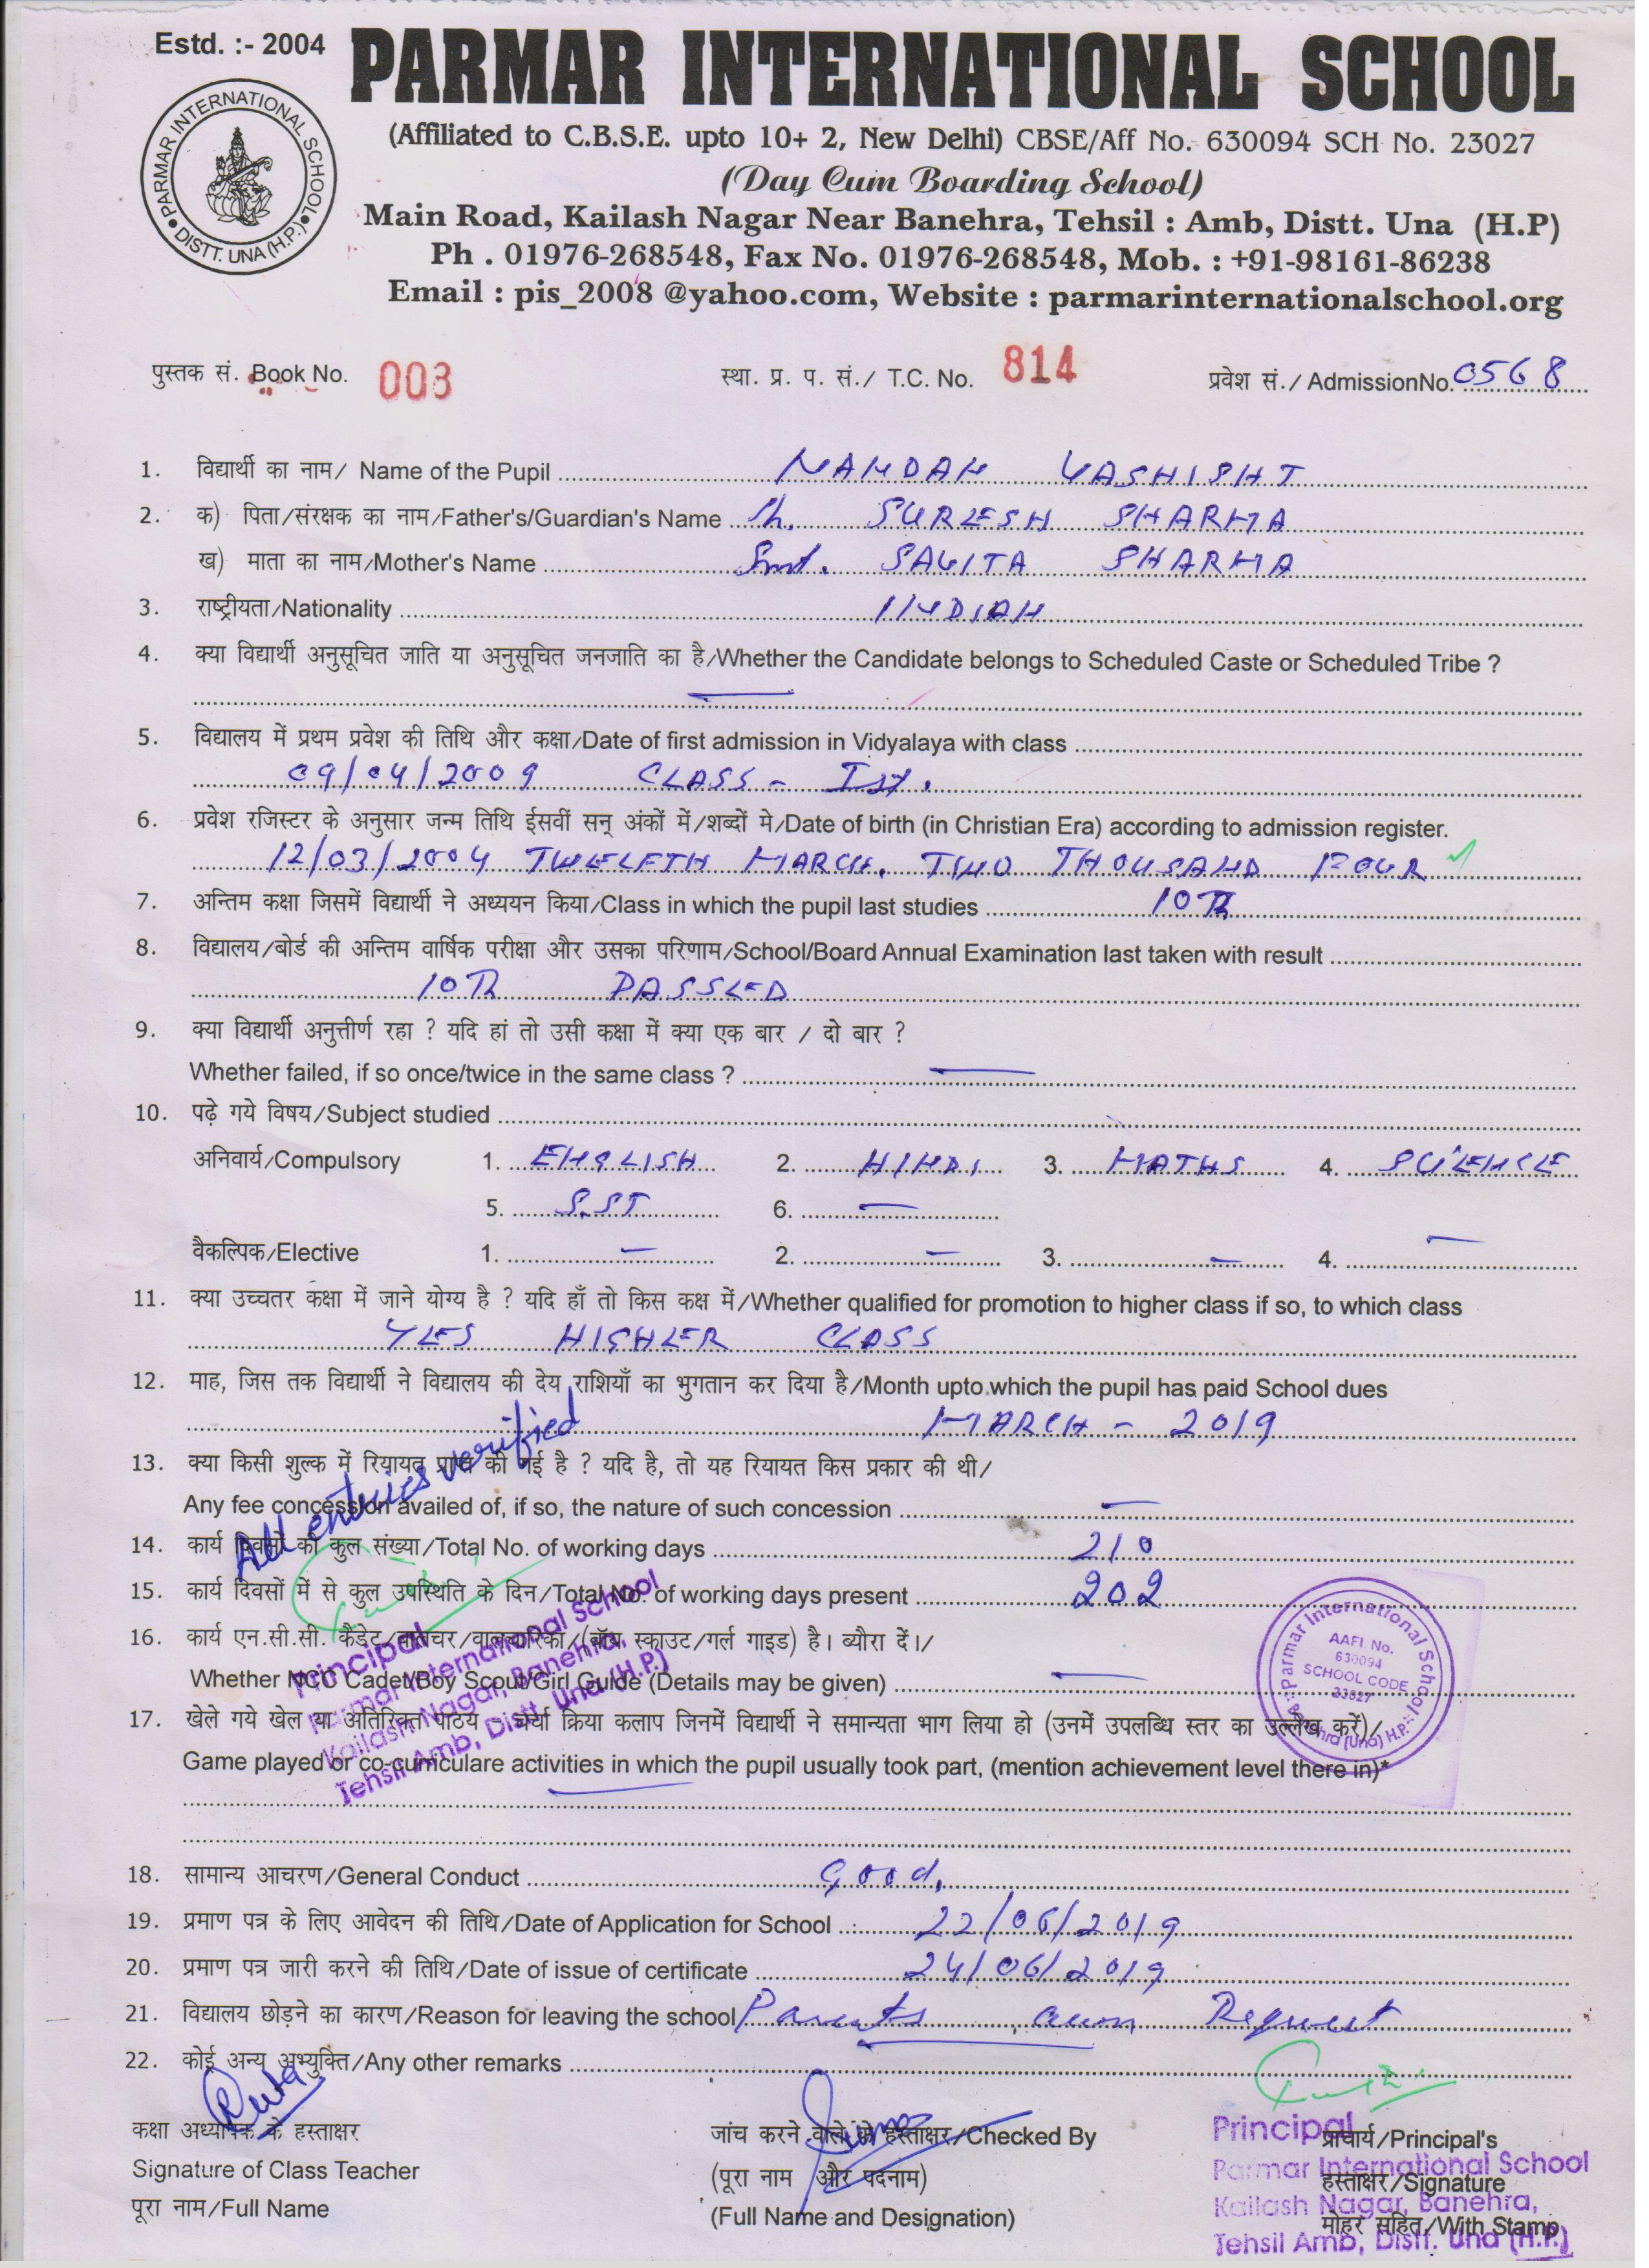 Estd. :- 2004
PARMAR INTERNATIONAL SCHOOL
PARMAR INTERNATIONAL SCHOOL
DISTT. UNA (H.P.)
(Affiliated to C.B.S.E. upto 10+ 2, New Delhi) CBSE/Aff No.- 630094 SCH No. 23027
(Day Cum Boarding School)
Main Road, Kailash Nagar Near Banehra, Tehsil : Amb, Distt. Una (H.P)
Ph . 01976-268548, Fax No. 01976-268548, Mob. : +91-98161-86238
Email : pis_2008 @yahoo.com, Website : parmarinternationalschool.org
पुस्तक सं. Book No. 003 स्था. प्र. प. सं./ T.C. No. 814 प्रवेश सं./ AdmissionNo. 0568
1. विद्यार्थी का नाम/ Name of the Pupil NANDAN VASHISHT
2. क) पिता/संरक्षक का नाम/Father's/Guardian's Name Sh. SURESH SHARMA
ख) माता का नाम/Mother's Name Smt. SAVITA SHARMA
3. राष्ट्रीयता/Nationality INDIAN
4. क्या विद्यार्थी अनुसूचित जाति या अनुसूचित जनजाति का है/Whether the Candidate belongs to Scheduled Caste or Scheduled Tribe ?
—
5. विद्यालय में प्रथम प्रवेश की तिथि और कक्षा/Date of first admission in Vidyalaya with class
09/04/2009 CLASS - Ist.
6. प्रवेश रजिस्टर के अनुसार जन्म तिथि ईसवीं सन् अंकों में/शब्दों मे/Date of birth (in Christian Era) according to admission register.
12/03/2004 TWELETH MARCH. TWO THOUSAND FOUR ✓
7. अन्तिम कक्षा जिसमें विद्यार्थी ने अध्ययन किया/Class in which the pupil last studies 10Th
8. विद्यालय/बोर्ड की अन्तिम वार्षिक परीक्षा और उसका परिणाम/School/Board Annual Examination last taken with result
10Th PASSED
9. क्या विद्यार्थी अनुत्तीर्ण रहा ? यदि हां तो उसी कक्षा में क्या एक बार / दो बार ?
Whether failed, if so once/twice in the same class ? —
10. पढ़े गये विषय/Subject studied
अनिवार्य/Compulsory 1. ENGLISH 2. HINDI 3. MATHS 4. SCIENCE
5. S.ST 6. —
वैकल्पिक/Elective 1. — 2. — 3. — 4. —
11. क्या उच्चतर कक्षा में जाने योग्य है ? यदि हाँ तो किस कक्ष में/Whether qualified for promotion to higher class if so, to which class
YES HIGHER CLASS
12. माह, जिस तक विद्यार्थी ने विद्यालय की देय राशियाँ का भुगतान कर दिया है/Month upto which the pupil has paid School dues
MARCH - 2019
All entries verified
13. क्या किसी शुल्क में रियायत प्राप्त की गई है ? यदि है, तो यह रियायत किस प्रकार की थी/
Any fee concession availed of, if so, the nature of such concession —
14. कार्य दिवसों की कुल संख्या/Total No. of working days 210
15. कार्य दिवसों में से कुल उपस्थिति के दिन/Total No. of working days present 202
16. कार्य एन.सी.सी. कैडेट/ (बॉय स्काउट/गर्ल गाइड) है। ब्यौरा दें।/
Whether NCC Cadet/Boy Scout/Girl Guide (Details may be given) —
17. खेले गये खेल या अतिरिक्त पाठय चर्या क्रिया कलाप जिनमें विद्यार्थी ने समान्यता भाग लिया हो (उनमें उपलब्धि स्तर का उल्लेख करें)/
Game played or co-curriculare activities in which the pupil usually took part, (mention achievement level there in)*
—
Principal
Parmar International School
Kailash Nagar, Banehra,
Tehsil Amb, Distt. Una (H.P.)
Parmar International School
AAFI. No.
630094
SCHOOL CODE
23027
Banehra (Una) H.P.
18. सामान्य आचरण/General Conduct Good.
19. प्रमाण पत्र के लिए आवेदन की तिथि/Date of Application for School 22/06/2019
20. प्रमाण पत्र जारी करने की तिथि/Date of issue of certificate 24/06/2019
21. विद्यालय छोड़ने का कारण/Reason for leaving the school Parents Request
22. कोई अन्य अभ्युक्ति/Any other remarks
कक्षा अध्यापक के हस्ताक्षर
Signature of Class Teacher
पूरा नाम/Full Name
जांच करने वाले के हस्ताक्षर/Checked By
(पूरा नाम और पदनाम)
(Full Name and Designation)
प्राचार्य/Principal's
हस्ताक्षर/Signature
मोहर सहित/With Stamp
Principal
Parmar International School
Kailash Nagar, Banehra,
Tehsil Amb, Distt. Una (H.P.)